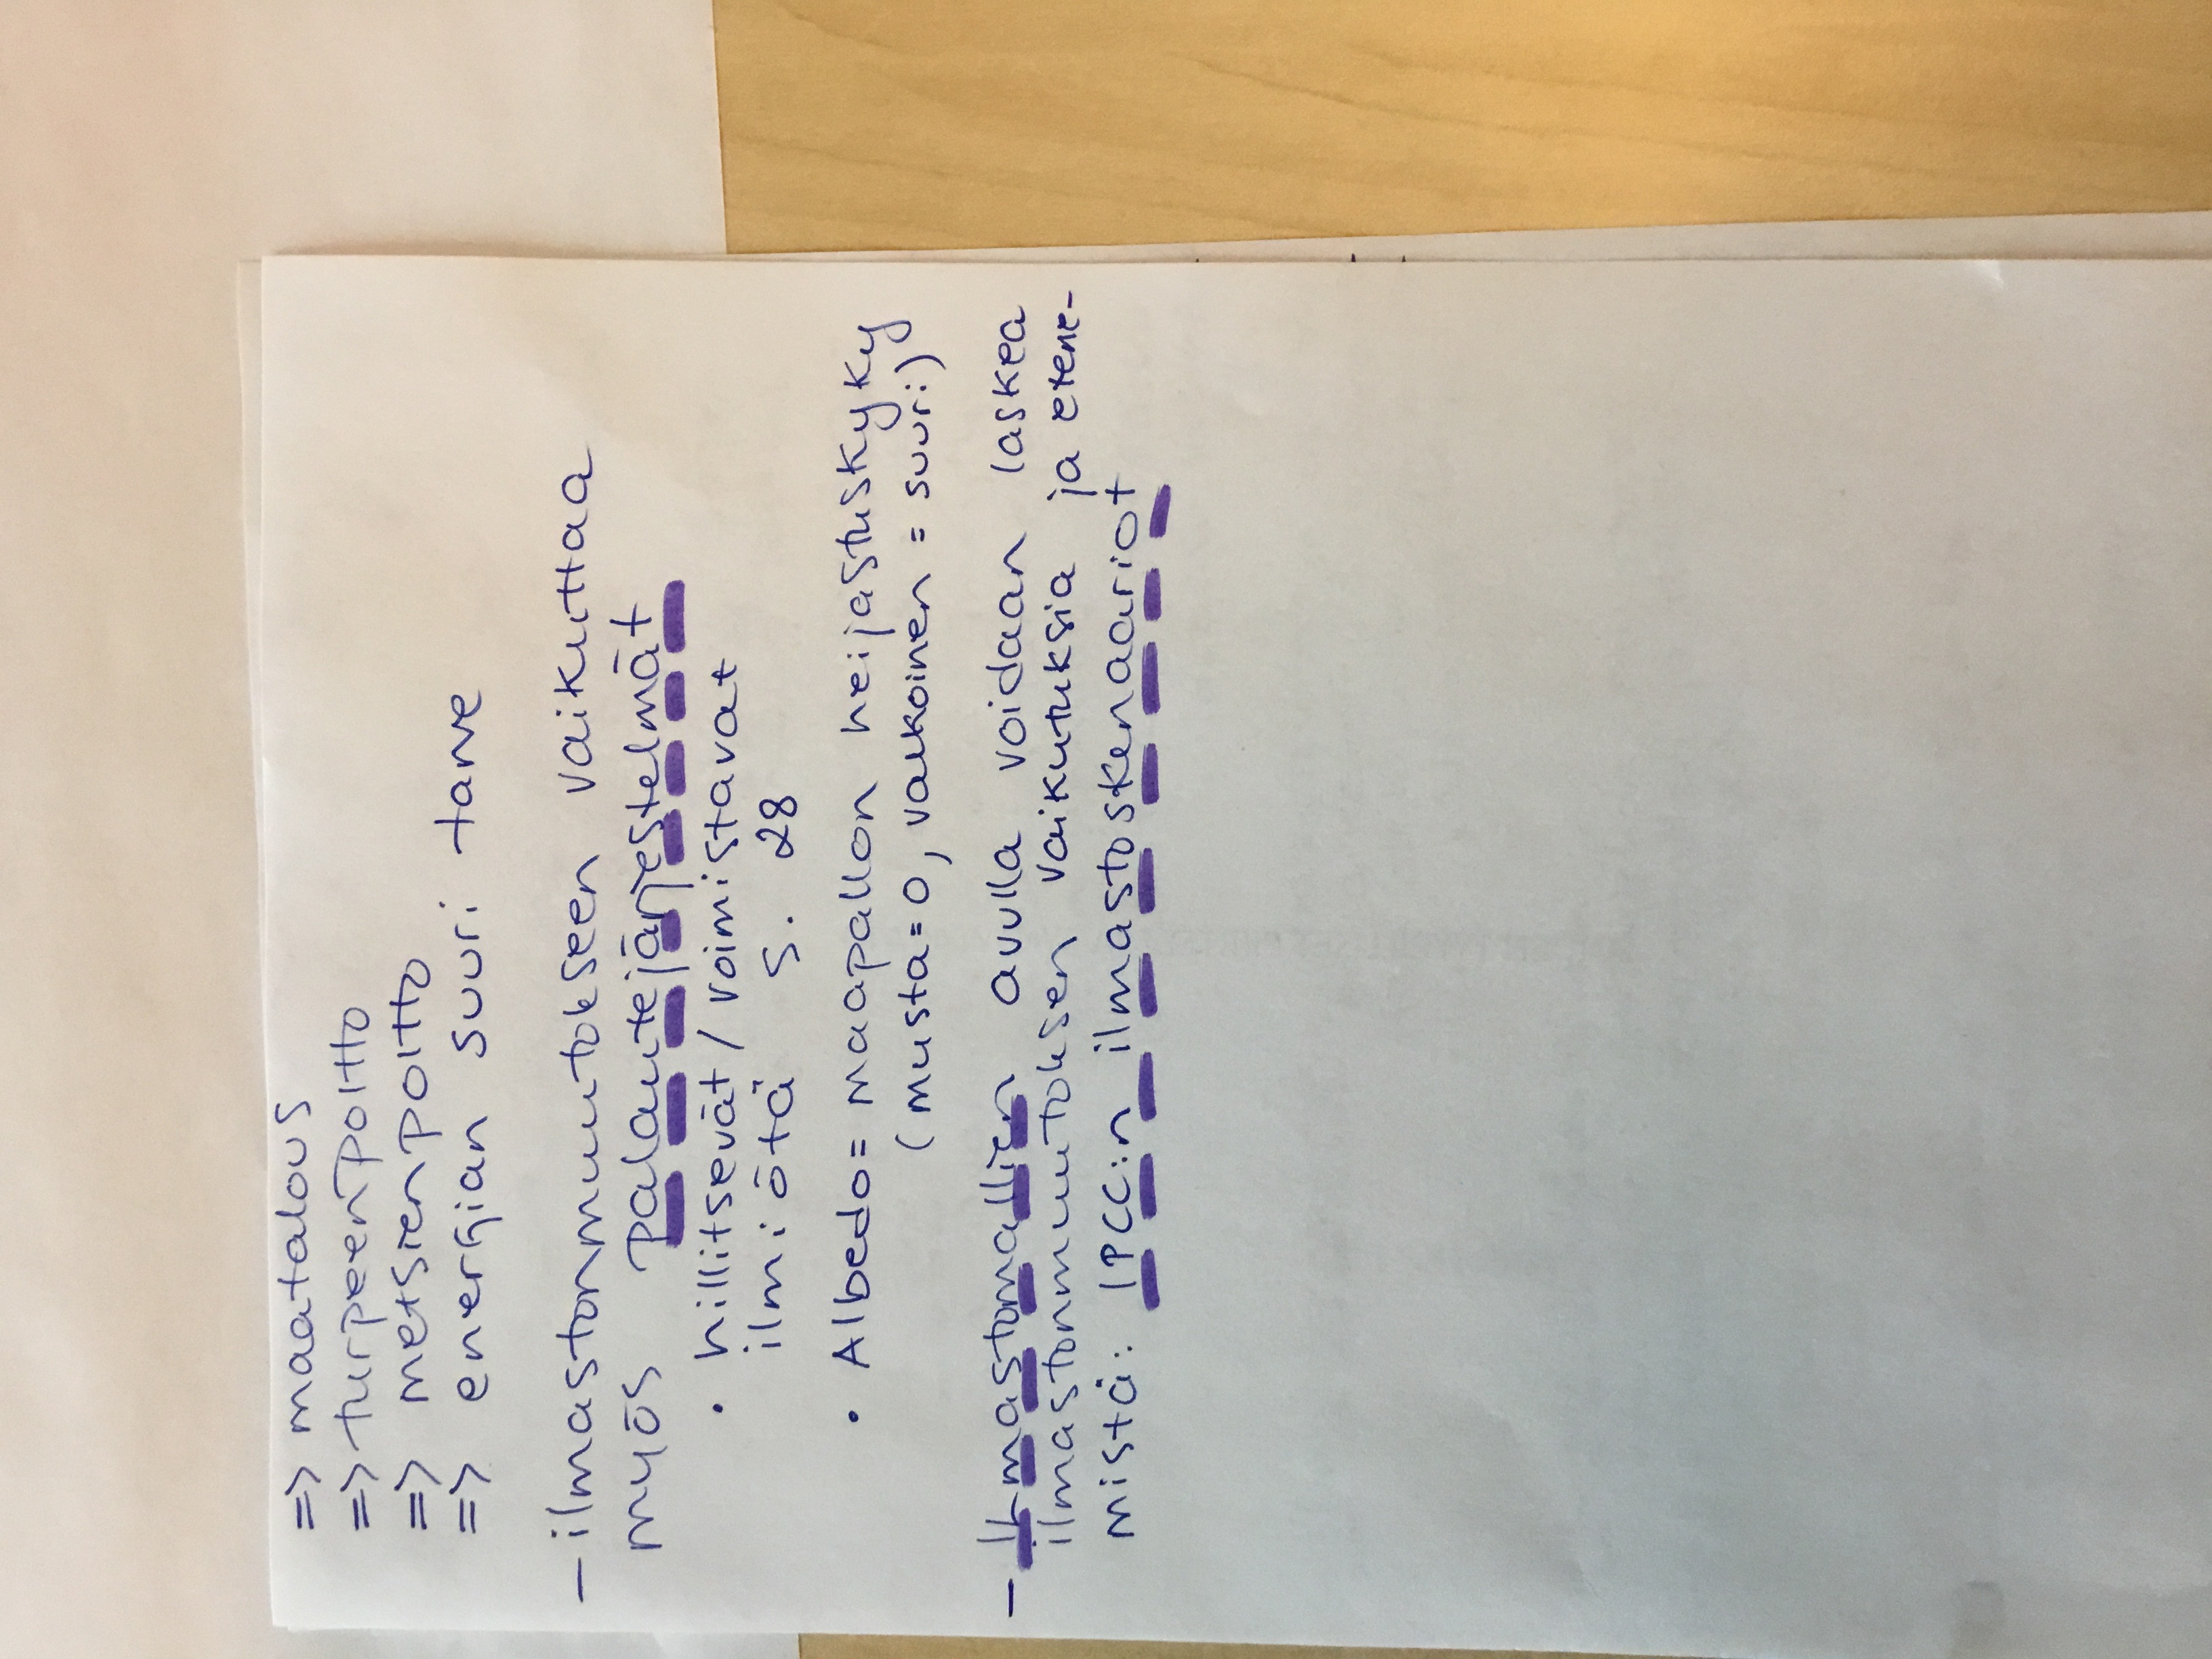 => maatalous
=> turpeenpoltto
=> metsienpoltto
=> energian suuri tarve
- ilmastonmuutokseen vaikuttaa
myös palautejärjestelmät
• hillitsevät / voimistavat
ilmiötä s. 28
• Albedo = maapallon heijastuskyky
(musta = 0, valkoinen = suuri)
- Ilmastomallien avulla voidaan laskea
ilmastonmuutoksen vaikutuksia ja etene-
mistä: IPCC:n ilmastoskenaariot